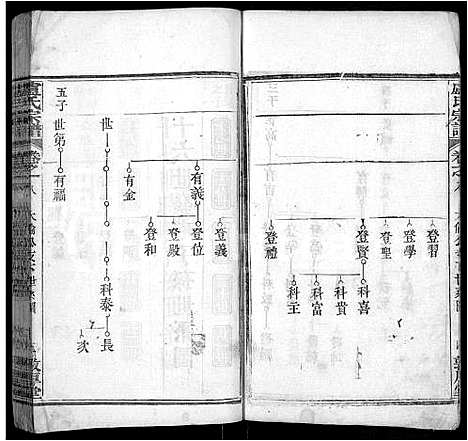 盧氏宗譜
卷之八
登習
登學
登聖
登賢
登禮
科喜
科貴
科富
科主
盧氏宗譜
卷之八
五子
世
有義
有金
登義
登位
登殿
登和
科泰
長
次
世第
有福
敦厚堂